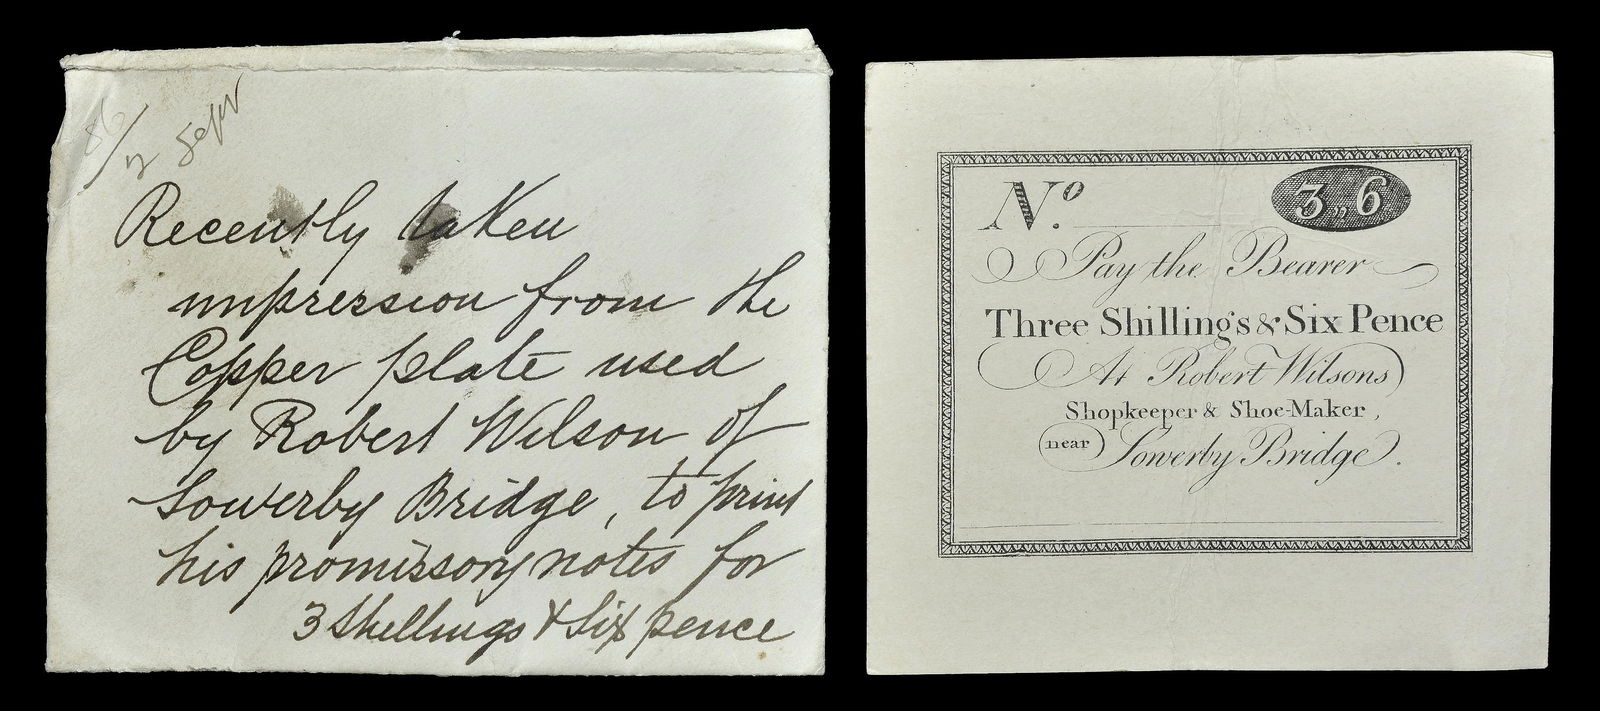 86/2 Sepr
Recently taken
impression from the
Copper plate used
by Robert Wilson of
Sowerby Bridge, to print
his promissory notes for
3 Shellings & Six pence
No. 3,,6
Pay the Bearer
Three Shillings & Six Pence
At Robert Wilsons
Shopkeeper & Shoe-Maker,
near Sowerby Bridge.